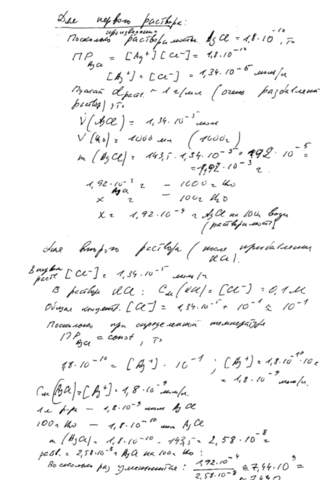 Для первого раствора:
произведение
Поскольку растворимости AgCl = 1,8·10⁻¹⁰, то
ПР AgCl = [Ag⁺][Cl⁻] = 1,8·10⁻¹⁰
[Ag⁺] = [Cl⁻] = 1,34·10⁻⁵ моль/л
Пускай d раст = 1 г/мл (очень разбавленный
раствор), то
ν(AgCl) = 1,34·10⁻⁵ моль
V(H₂O) = 1000 мл (1000г)
m(AgCl) = 143,5·1,34·10⁻⁵ = 192·10⁻⁵ =
= 1,92·10⁻³ г
1,92·10⁻³ г AgCl – 1000г H₂O
x – 100г H₂O
x = 1,92·10⁻⁴ г AgCl на 100г воды
(растворимость)
Для второго раствора (после прибавления
KCl).
В первом раст. [Cl⁻] = 1,34·10⁻⁵ моль/л
В растворе KCl: См(KCl) = [Cl⁻] = 0,1 М
Общая концент. [Cl⁻] = 1,34·10⁻⁵ + 10⁻¹ ≈ 10⁻¹
Поскольку при определенной температуре
ПР AgCl = const, то
1,8·10⁻¹⁰ = [Ag⁺]·10⁻¹ ; [Ag⁺] = 1,8·10⁻¹⁰·10 =
= 1,8·10⁻⁹ моль/л
См(AgCl) = [Ag⁺] = 1,8·10⁻⁹ моль/л
1л р-ра – 1,8·10⁻⁹ моль AgCl
100г H₂O – 1,8·10⁻¹⁰ моль AgCl
m(AgCl) = 1,8·10⁻¹⁰·143,5 = 2,58·10⁻⁸ г
раств. = 2,58·10⁻⁸ г AgCl на 100г H₂O
раз уменьшится: 1,92·10⁻⁴ / 2,58·10⁻⁸ = 7,44·10³